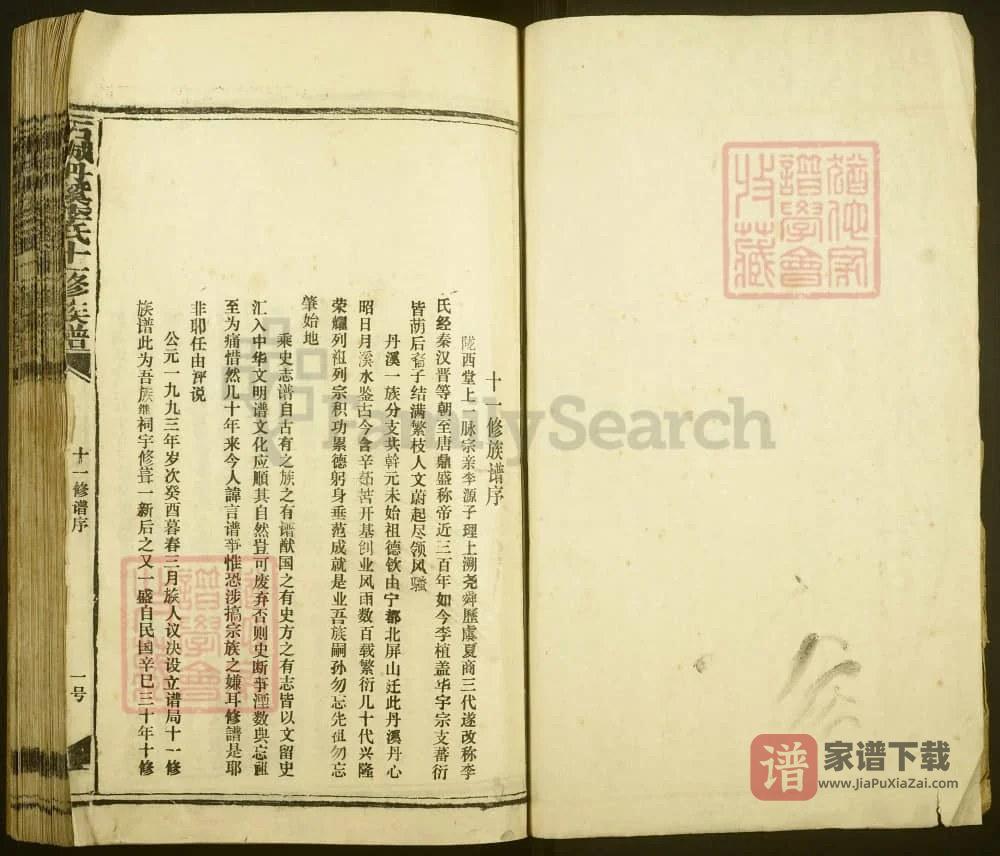 十一修族谱序
陇西堂上一脉宗亲李源子理上溯尧舜歷虞夏商三代遂改称李
氏经秦汉晋等朝至唐鼎盛称帝近三百年如今李植盖华宇宗支蕃衍
皆荫后裔子结满繁枝人文蔚起尽领风骚
丹溪一族分支共幹元末始祖德钦由宁都北屏山迁此丹溪丹心
昭日月溪水鉴古今含辛茹苦开基创业风雨数百载繁衍几十代兴隆
荣耀列祖列宗积功累德躬身垂范成就是业吾族嗣孙勿忘先祖勿忘
肇始地
乘史志谱自古有之族之有谱猷国之有史方之有志皆以文留史
汇入中华文明谱文化应顺其自然豈可废弃否则史断事湮数典忘祖
至为痛惜然几十年来今人諱言谱事惟恐涉搞宗族之嫌耳修譜是耶
非耶任由评说
公元一九九三年岁次癸酉暮春三月族人议决设立谱局十一修
族谱此为吾族继祠宇修葺一新后之又一盛自民国辛巳三十年十修
石城丹溪李氏十一修族谱
十一修谱序
一号
譜學會
收藏
FamilySearch
谱 家谱下载
www.JiaPuXiaZai.com